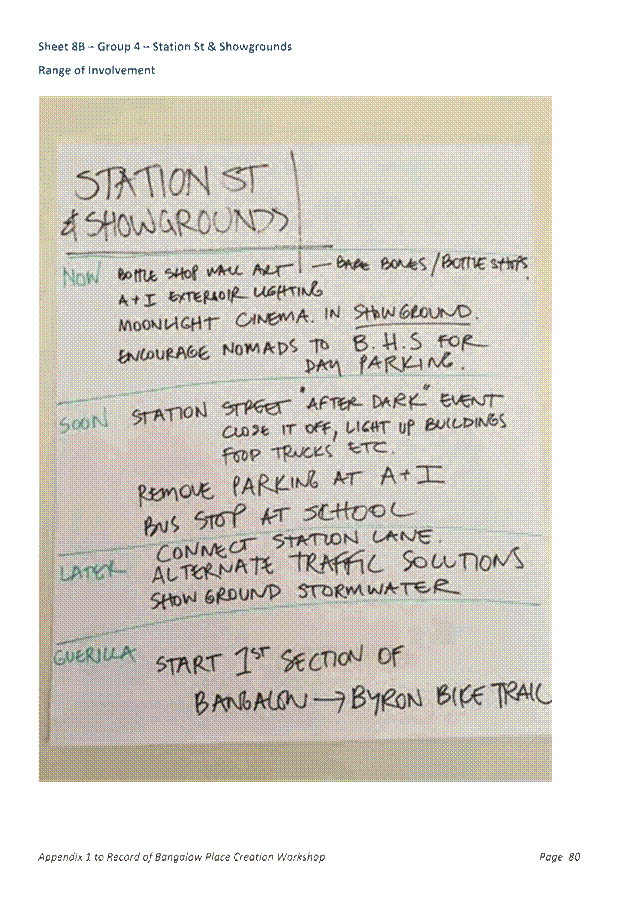 Sheet 8B – Group 4 – Station St & Showgrounds
Range of Involvement
STATION ST
& SHOWGROUNDS
NOW BOTTLE SHOP WALL ART — BARE BONES / BOTTLE SHOPS
A + I EXTERIOR LIGHTING
MOONLIGHT CINEMA. IN SHOWGROUND.
ENCOURAGE NOMADS TO B.H.S FOR
DAY PARKING.
SOON STATION STREET "AFTER DARK" EVENT
CLOSE IT OFF, LIGHT UP BUILDINGS
FOOD TRUCKS ETC.
REMOVE PARKING AT A + I
BUS STOP AT SCHOOL
CONNECT STATION LANE.
LATER ALTERNATE TRAFFIC SOLUTIONS
SHOWGROUND STORMWATER
GUERILLA START 1ST SECTION OF
BANGALOW → BYRON BIKE TRAIL
Appendix 1 to Record of Bangalow Place Creation Workshop Page 80